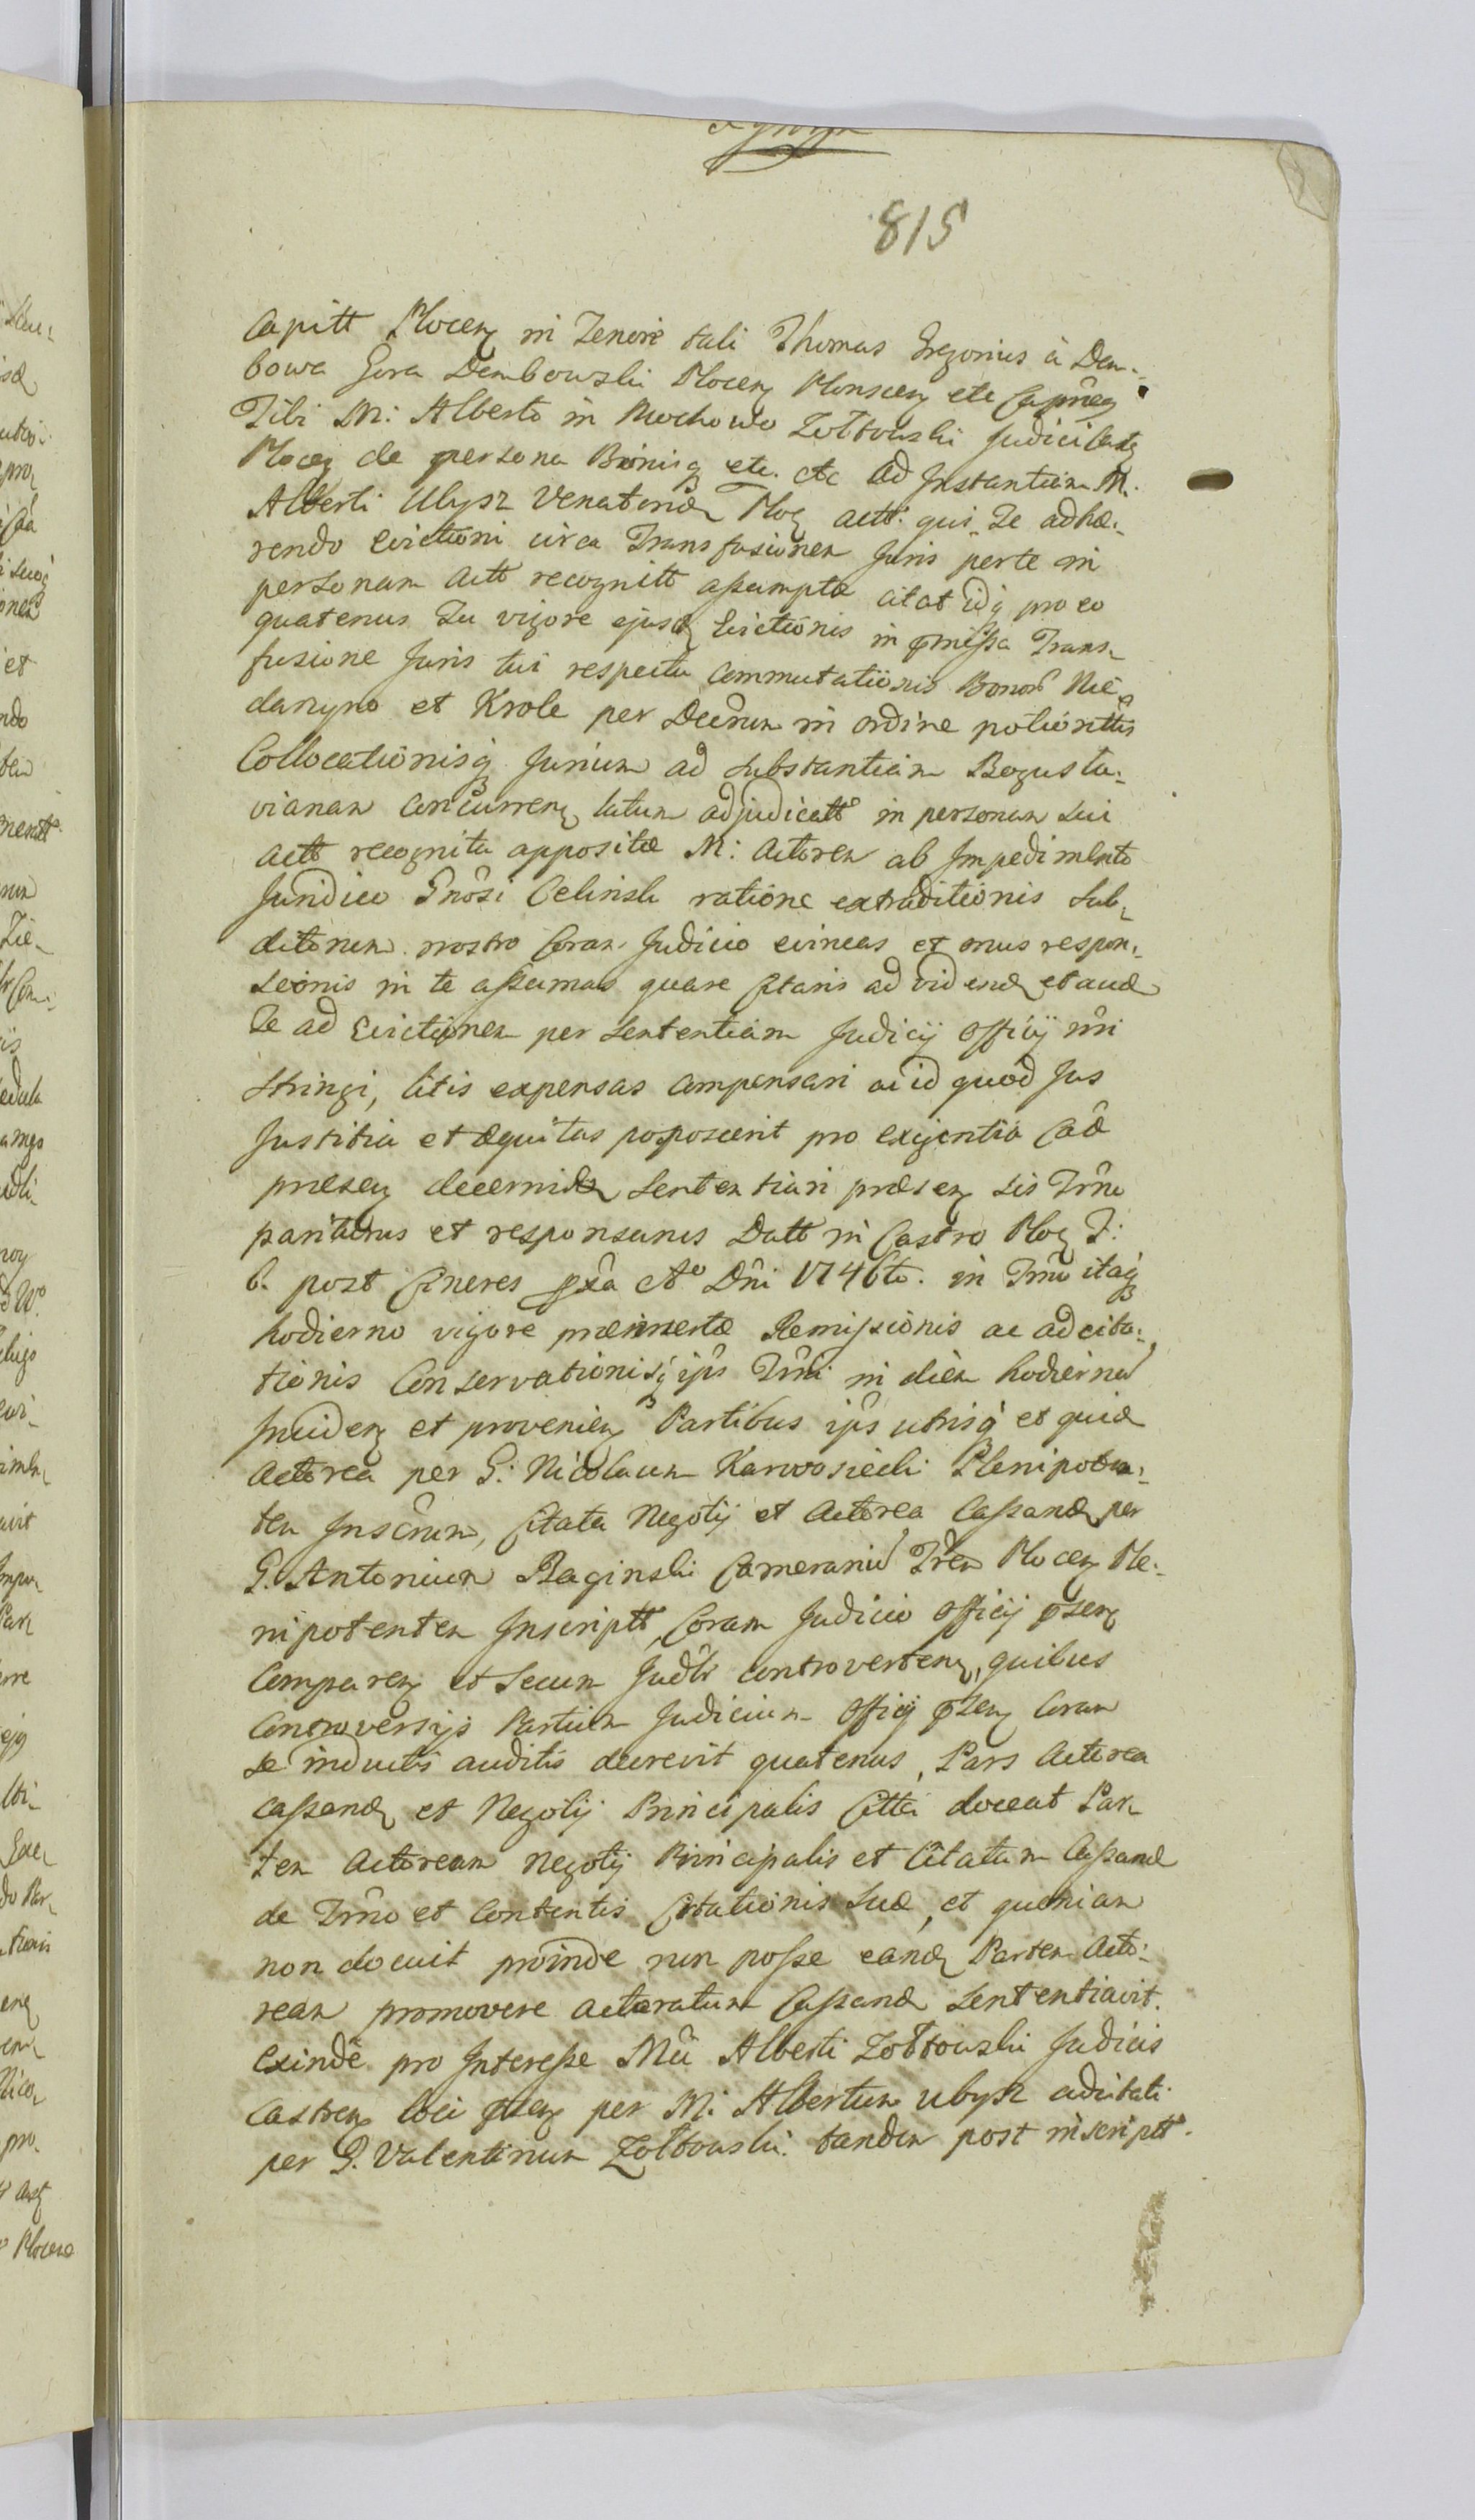 815
Capitt Plocen in Tenore tali Thomas Gregorius à Dem-
bowa Gora Dembowski Plocen Plonscen etc Capneus
Tibi M: Alberto in Mochowo Zołtowski Judici Castr
Plocen de persona Bonisq etc. etc Ad Instantiam M.
Alberti Ubysz Venatoris Ploc actt. qui Te adhæ-
rendo Evictioni circa Transfusionem Juris per te in
personam Actt recognitt assumptæ citat idq pro eo
quatenus Tu vigore ejusd Evictionis in pmissa Trans-
fusione Juris tui respectu Commutationis Bonor Nie-
darzyno et Krole per Decrum in ordine potioritts
Collocationisq Jurium ad Substantiam Bogusla-
vianam Concurren latum adjudicatt in personam sui
actt recognita appositæ M: Actorem ab Impedimento
Juridico Gnosi Celinski ratione extraditionis Sub-
ditorum nostro Coram Judicio evincas et onus respon-
sionis in te assumas quare Citaris ad vidend et aud
Te ad Evictionem per Sententiam Judicij Officij nri
Stringi, litis expensas compensari ac id quod Jus
Justitia et Æquitas poposcerit pro exigentia Cað
præsen decernid Sententiari præsen sis Trmo
pariturus et responsurus Datt in Castro Ploc F:
6. post Cineres pxa Ao Dni 1746to. in Trmo itaq
hodierno vigore præinsertæ Remissionis ac adcita-
tionis Conservationisq ips Trmi in diem hodiernam
Inciden et provenien Partibus ips utrisq et quid
Actorea per G: Nicolaum Karwosiecki Plenipoten-
tem Inscrum, Citata Negotij et Actorea Cassand per
G. Antonium Raginski Camerariu Trem Plocen Ple-
nipotentem Inscriptt, Coram Judicio Officij psen
Comparen et Secum Judlr controverten, quibus
Controversijs Partium Judicium Officij psen Coram
se inductis auditis decrevit quatenus, Pars Actorea
Cassand et Negotij Principalis Citta doceat Par-
tem Actoream Negotij Principalis et Citatam Cassand
de Trmo et Contentis Citationis suæ, et quoniam
non docuit proinde non posse eand Partem Acto-
ream promovere actoratum Cassand Sententiavit.
Exinde pro Interesse Mci Alberti Zołtowski Judicis
Castren loci psen per M: Albertum Ubysz adcitati
per G. Valentinum Zołtowski tandem post inscriptt.